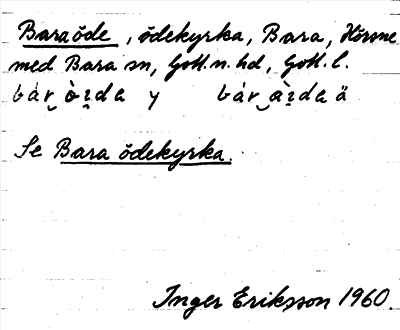 Bara öde, ödekyrka, Bara, Hörsne
med Bara sn, Gotl. n. hd, Gotl. l.
bár̬ òi̯da y bár̬ ài̯da ä
Se Bara ödekyrka.
Inger Eriksson 1960.